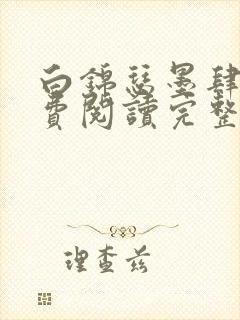 白錦瑟墨肆
費閱讀完整
理查茲